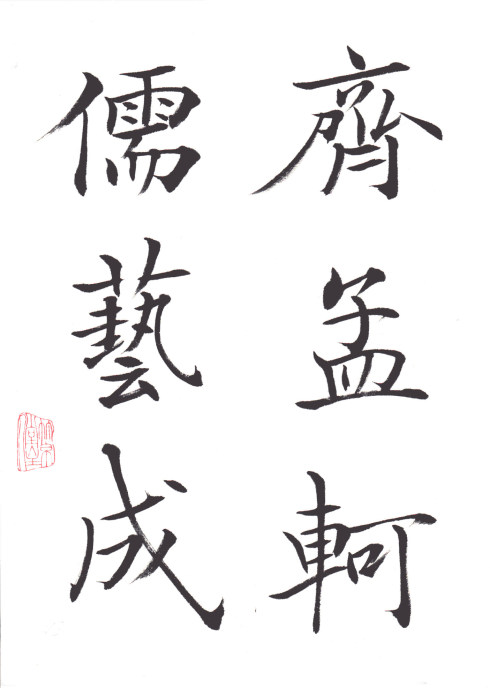 齊孟軻
儒藝成